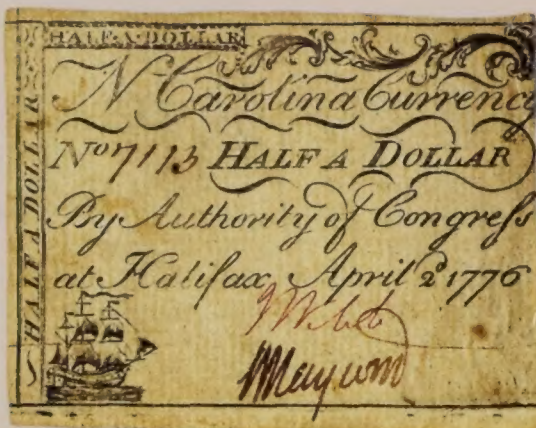 HALF·A·DOLLAR
HALF A DOLLAR
N Carolina Currency
No 7113 HALF A DOLLAR
By Authority of Congreſs
at Halifax April 2d 1776
J Webb